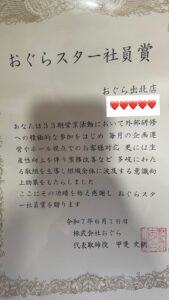 おぐらスター社員賞
おぐら出北店
あなたは33期営業活動において外部研修
への積極的な参加をはじめ 毎月の企画運
営やホール視点でのお客様対応 更には生
産性向上を伴う業務改善など 多岐にわた
る取組を主導し組織全体に波及する意識向
上効果をもたらしました
ここにその功績を称え感謝し おぐらスタ
ー社員賞を贈ります
令和7年6月16日
株式会社おぐら
代表取締役 甲斐